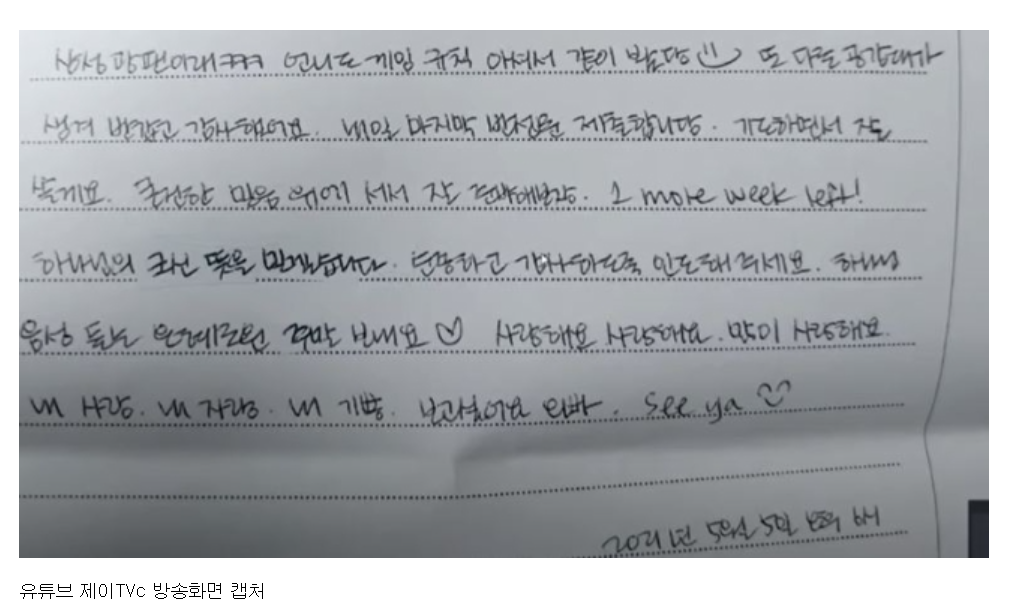 삼성 광팬이래ㅋㅋㅋ 언니도 게임 규칙 아셔서 같이 봤당 또 다른 공감대가
생겨 반갑고 감사해여요. 내일 마지막 반성문 제출합니다. 기도하면서 잘
쓸게요. 굳건한 믿음 위에 서서 잘 1 more week left!
하나님의 크신 뜻을 믿겠습니다. 감사하도록 인도해 주세요. 하나님
음성 듣는 은혜로운 주말 보내요 ♡ 사랑해요 사랑해요. 많이 사랑해요.
내 사랑. 내 자랑. 내 기쁨. 보고싶어요 오빠. See ya
2021년 5월 5일
유튜브 제이TVc 방송화면 캡처